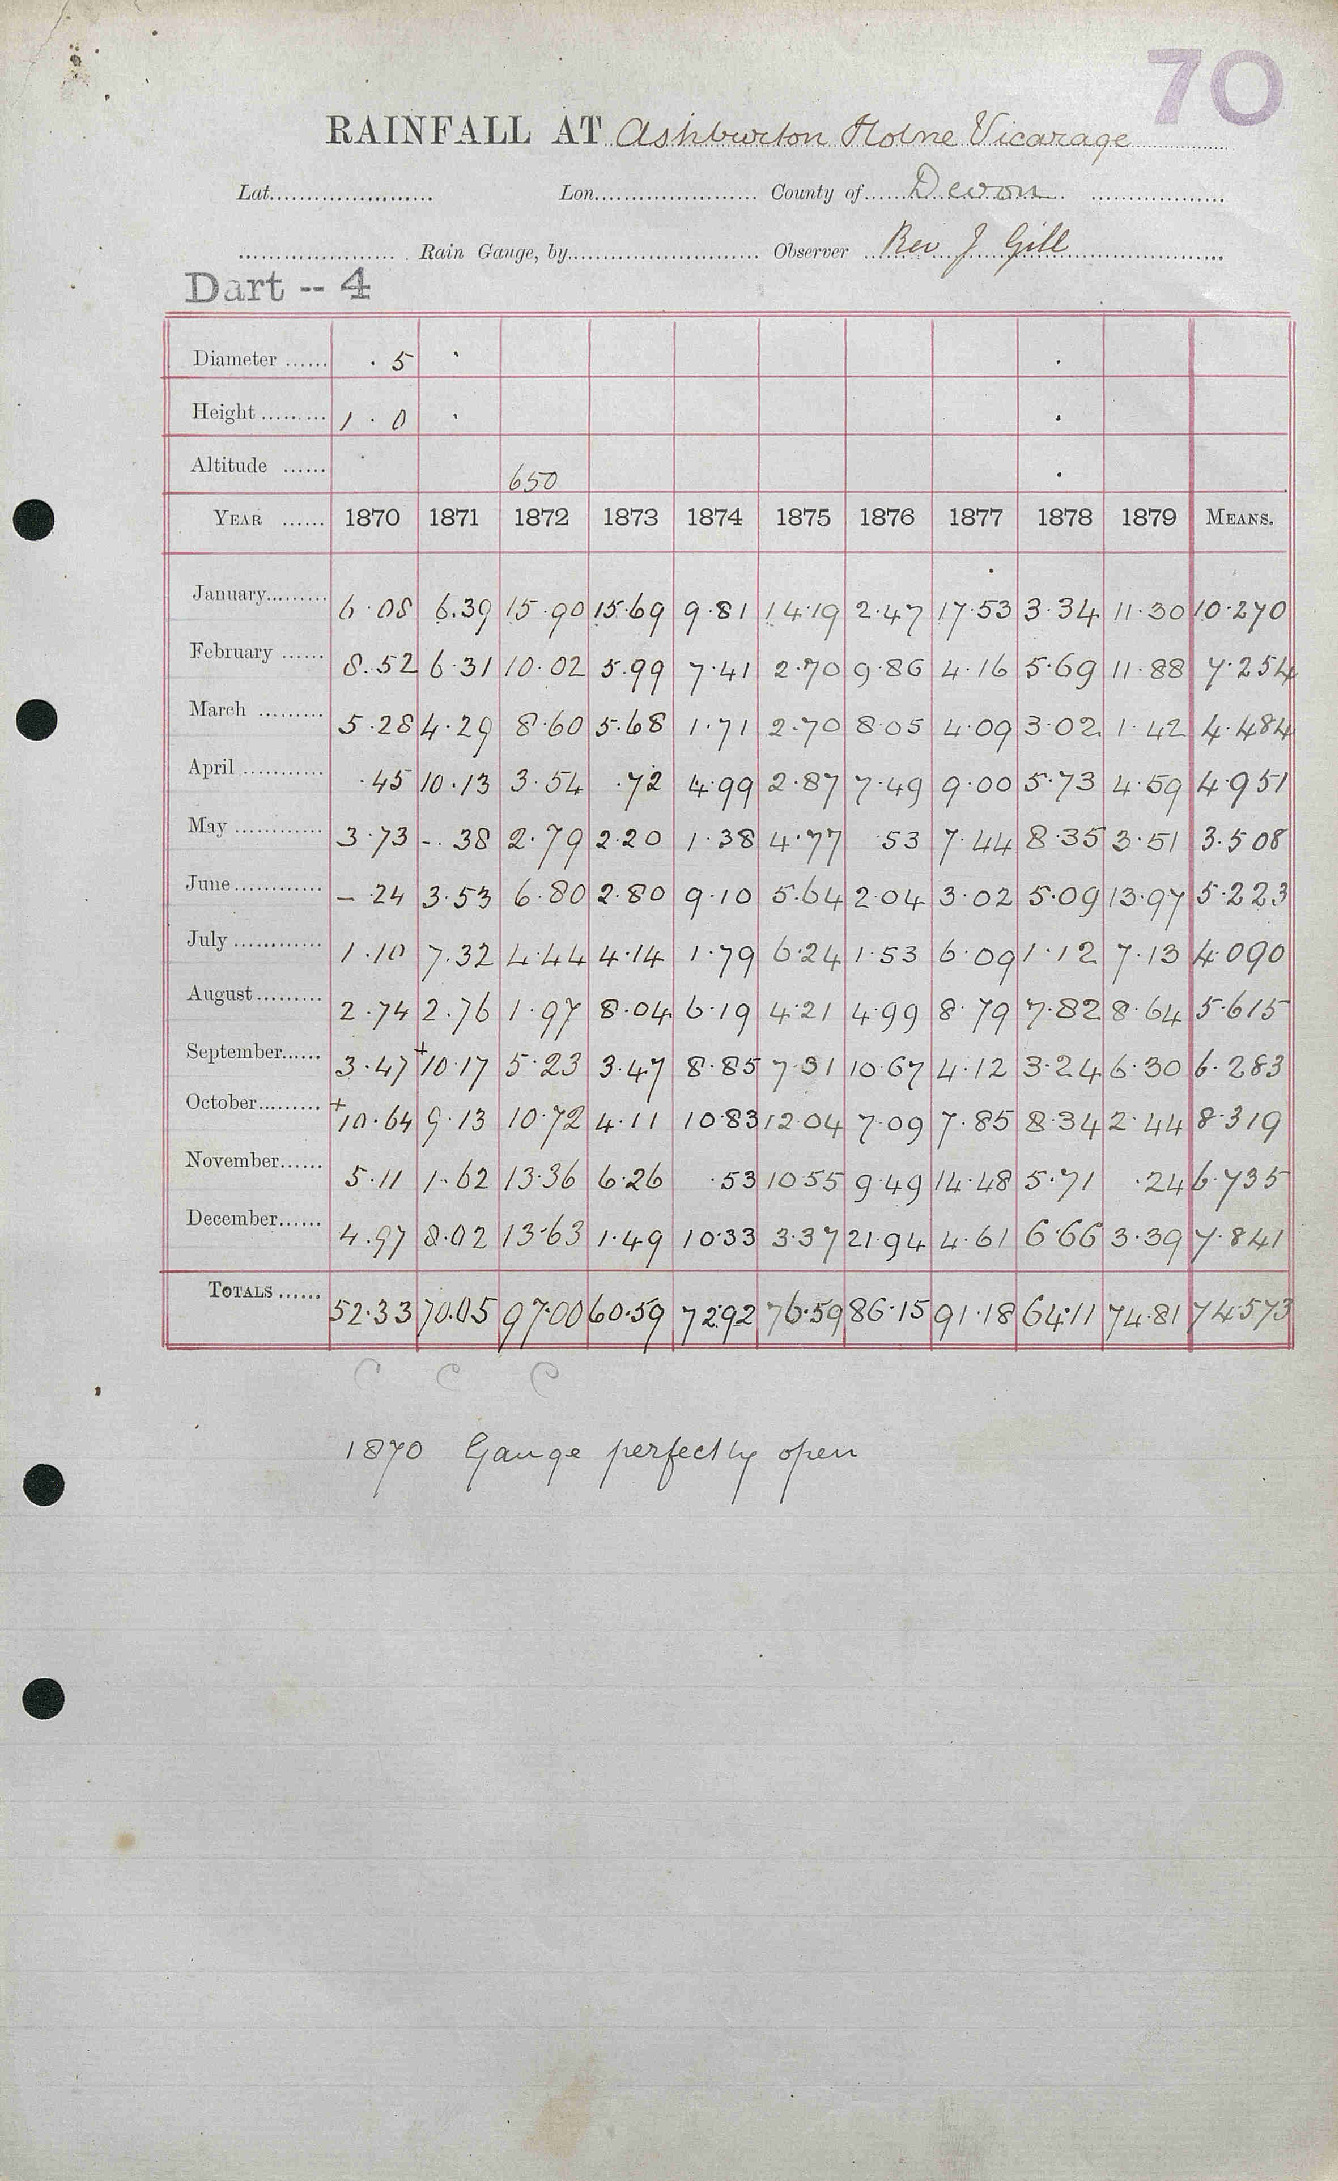 70
RAINFALL AT Ashburton Holne Vicarage
Lat. Lon. County of Devon
Rain Gauge, by Observer Rev J Gill
Dart -- 4
Diameter . 5 .  .
Height 1 . 0 .  .
Altitude 650 .
YEAR 1870 1871 1872 1873 1874 1875 1876 1877 1878 1879 MEANS.
January 6.08 6.39 15.90 15.69 9.81 14.19 2.47 17.53 3.34 11.30 10.270
February 8.52 6.31 10.02 5.99 7.41 2.70 9.86 4.16 5.69 11.88 7.254
March 5.28 4.29 8.60 5.68 1.71 2.70 8.05 4.09 3.02 1.42 4.484
April .45 10.13 3.54 .72 4.99 2.87 7.49 9.00 5.73 4.59 4.951
May 3.73 -.38 2.79 2.20 1.38 4.77 53 7.44 8.35 3.51 3.508
June -.24 3.53 6.80 2.80 9.10 5.64 2.04 3.02 5.09 13.97 5.223
July 1.10 7.32 4.44 4.14 1.79 6.24 1.53 6.09 1.12 7.13 4.090
August 2.74 2.76 1.97 8.04 6.19 4.21 4.99 8.79 7.82 8.64 5.615
September 3.47 +10.17 5.23 3.47 8.85 7.31 10.67 4.12 3.24 6.30 6.283
October +10.64 9.13 10.72 4.11 10.83 12.04 7.09 7.85 8.34 2.44 8.319
November 5.11 1.62 13.36 6.26 .53 10.55 9.49 14.48 5.71 .24 6.735
December 4.97 8.02 13.63 1.49 10.33 3.37 21.94 4.61 6.66 3.39 7.841
TOTALS 52.33 70.05 97.00 60.59 72.92 76.59 86.15 91.18 64.11 74.81 74.573
C C C
1870 Gauge perfectly open